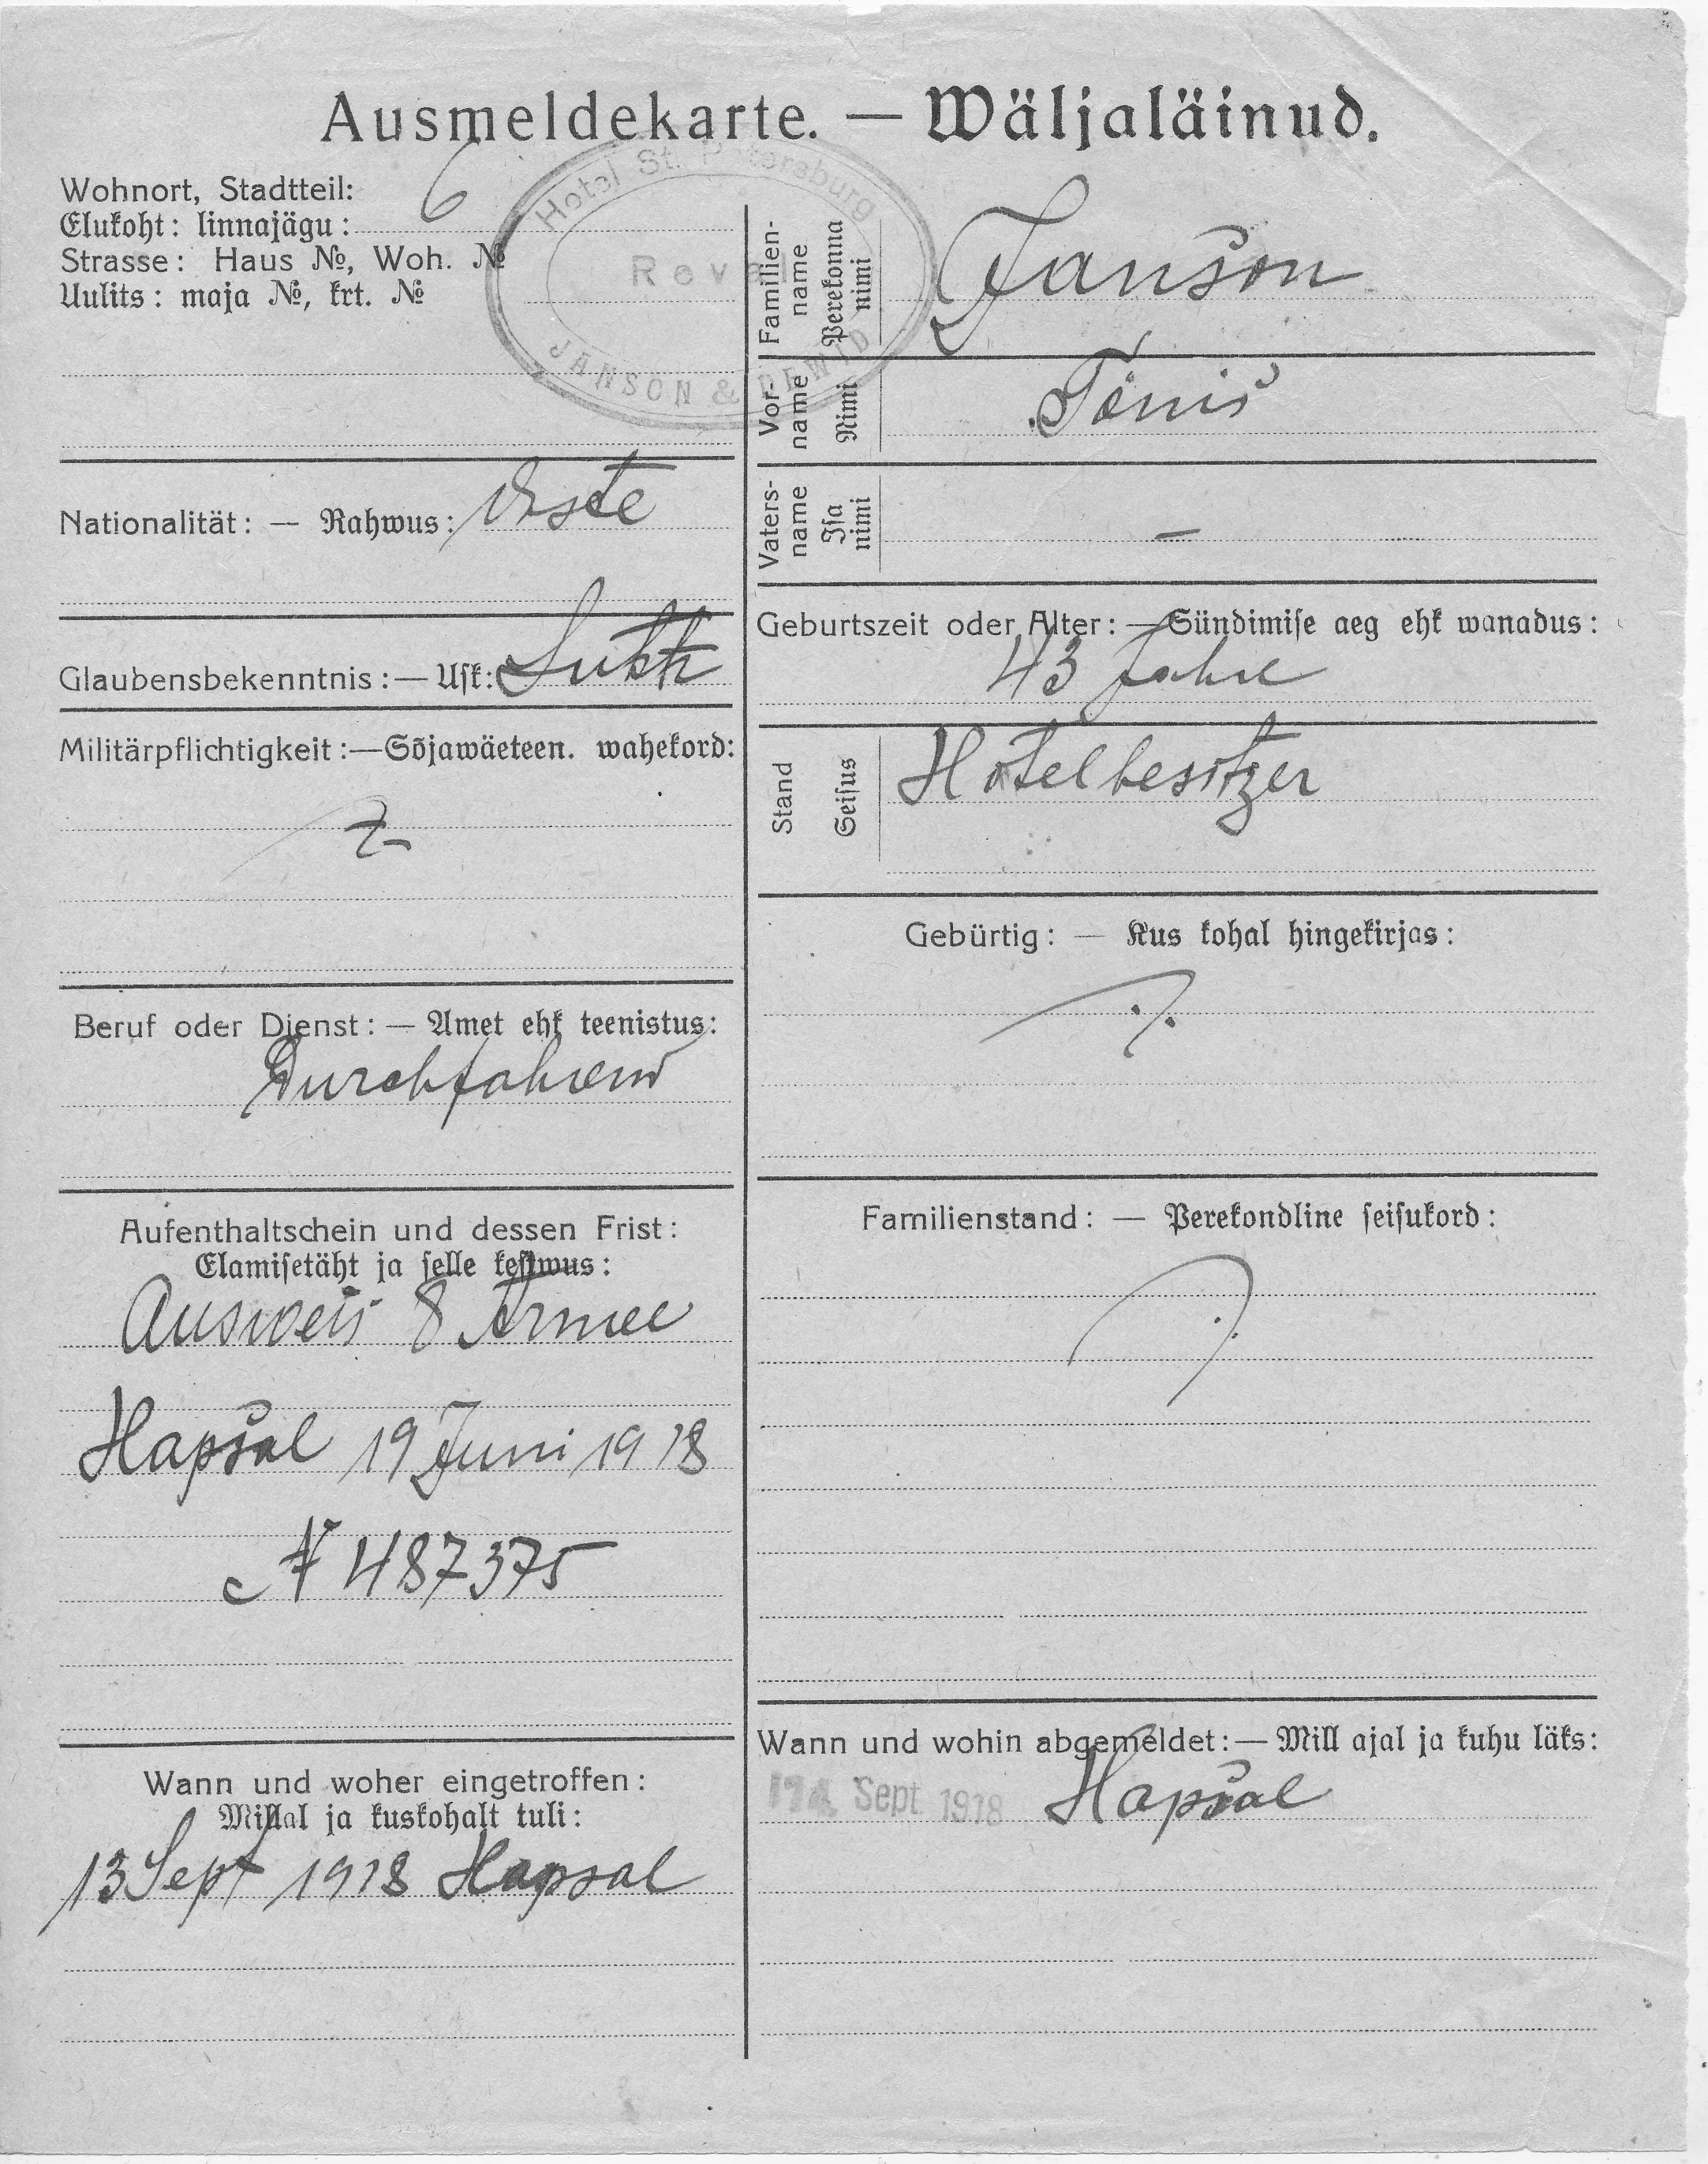 Ausmeldekarte. — Wäljaläinud.
Wohnort, Stadtteil:
Elukoht: linnajägu:
6
Strasse: Haus №, Woh. №
Uulits: maja №, krt. №
Hotel St. Petersburg
Reval
JANSON & DEWID
Nationalität: — Rahwus: Este
Glaubensbekenntnis: — Usk: Luth
Militärpflichtigkeit: — Sõjawäeteen. wahekord:
Beruf oder Dienst: — Amet ehk teenistus:
Durchfahrend
Aufenthaltschein und dessen Frist:
Elamisetäht ja selle kestwus:
Ausweis 8 Armee
Hapsal 19 Juni 1918
№ 487375
Wann und woher eingetroffen:
Millal ja kuskohalt tuli:
13 Sept 1918 Hapsal
Familien-
name
Perekonna
nimi
Janson
Vor-
name
Nimi
Tönis
Vaters-
name
Isa
nimi
—
Geburtszeit oder Alter: — Sündimise aeg ehk wanadus:
43 Jahre
Stand
Seisus
Hotelbesitzer
Gebürtig: — Kus kohal hingekirjas:
Familienstand: — Perekondline seisukord:
Wann und wohin abgemeldet: — Mill ajal ja kuhu läks:
Sept 1918 Hapsal